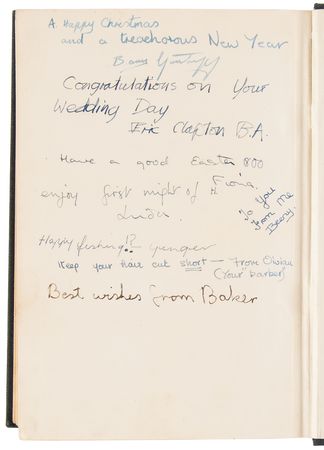 A. Happy Christmas
and a treachorous New Year
Congratulations on Your
Wedding Day
Eric Clapton B.A.
Have a good Easter 800
enjoy first night of H Fiona.
To You
From Me
Happy fishing!?
Keep your hair cut short — From
(Your barber)
Best wishes from Baker